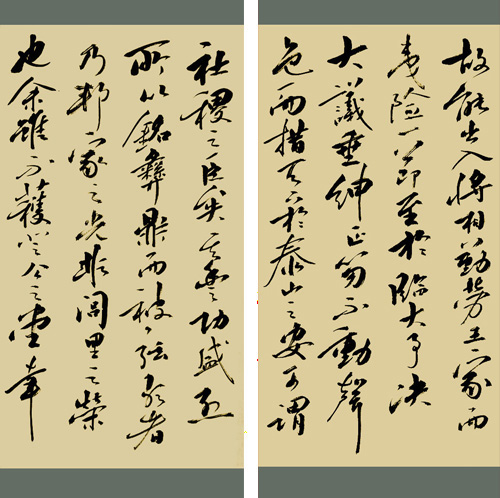 故能出入將相勤勞王家而
夷險一節至於臨大事決
大議垂紳正笏不動聲
色而措天下於泰山之安可謂
社稷之臣矣其豐功盛烈
所以銘彝鼎而被弦歌者
乃邦家之光非閭里之榮
也余雖不獲登公之堂幸